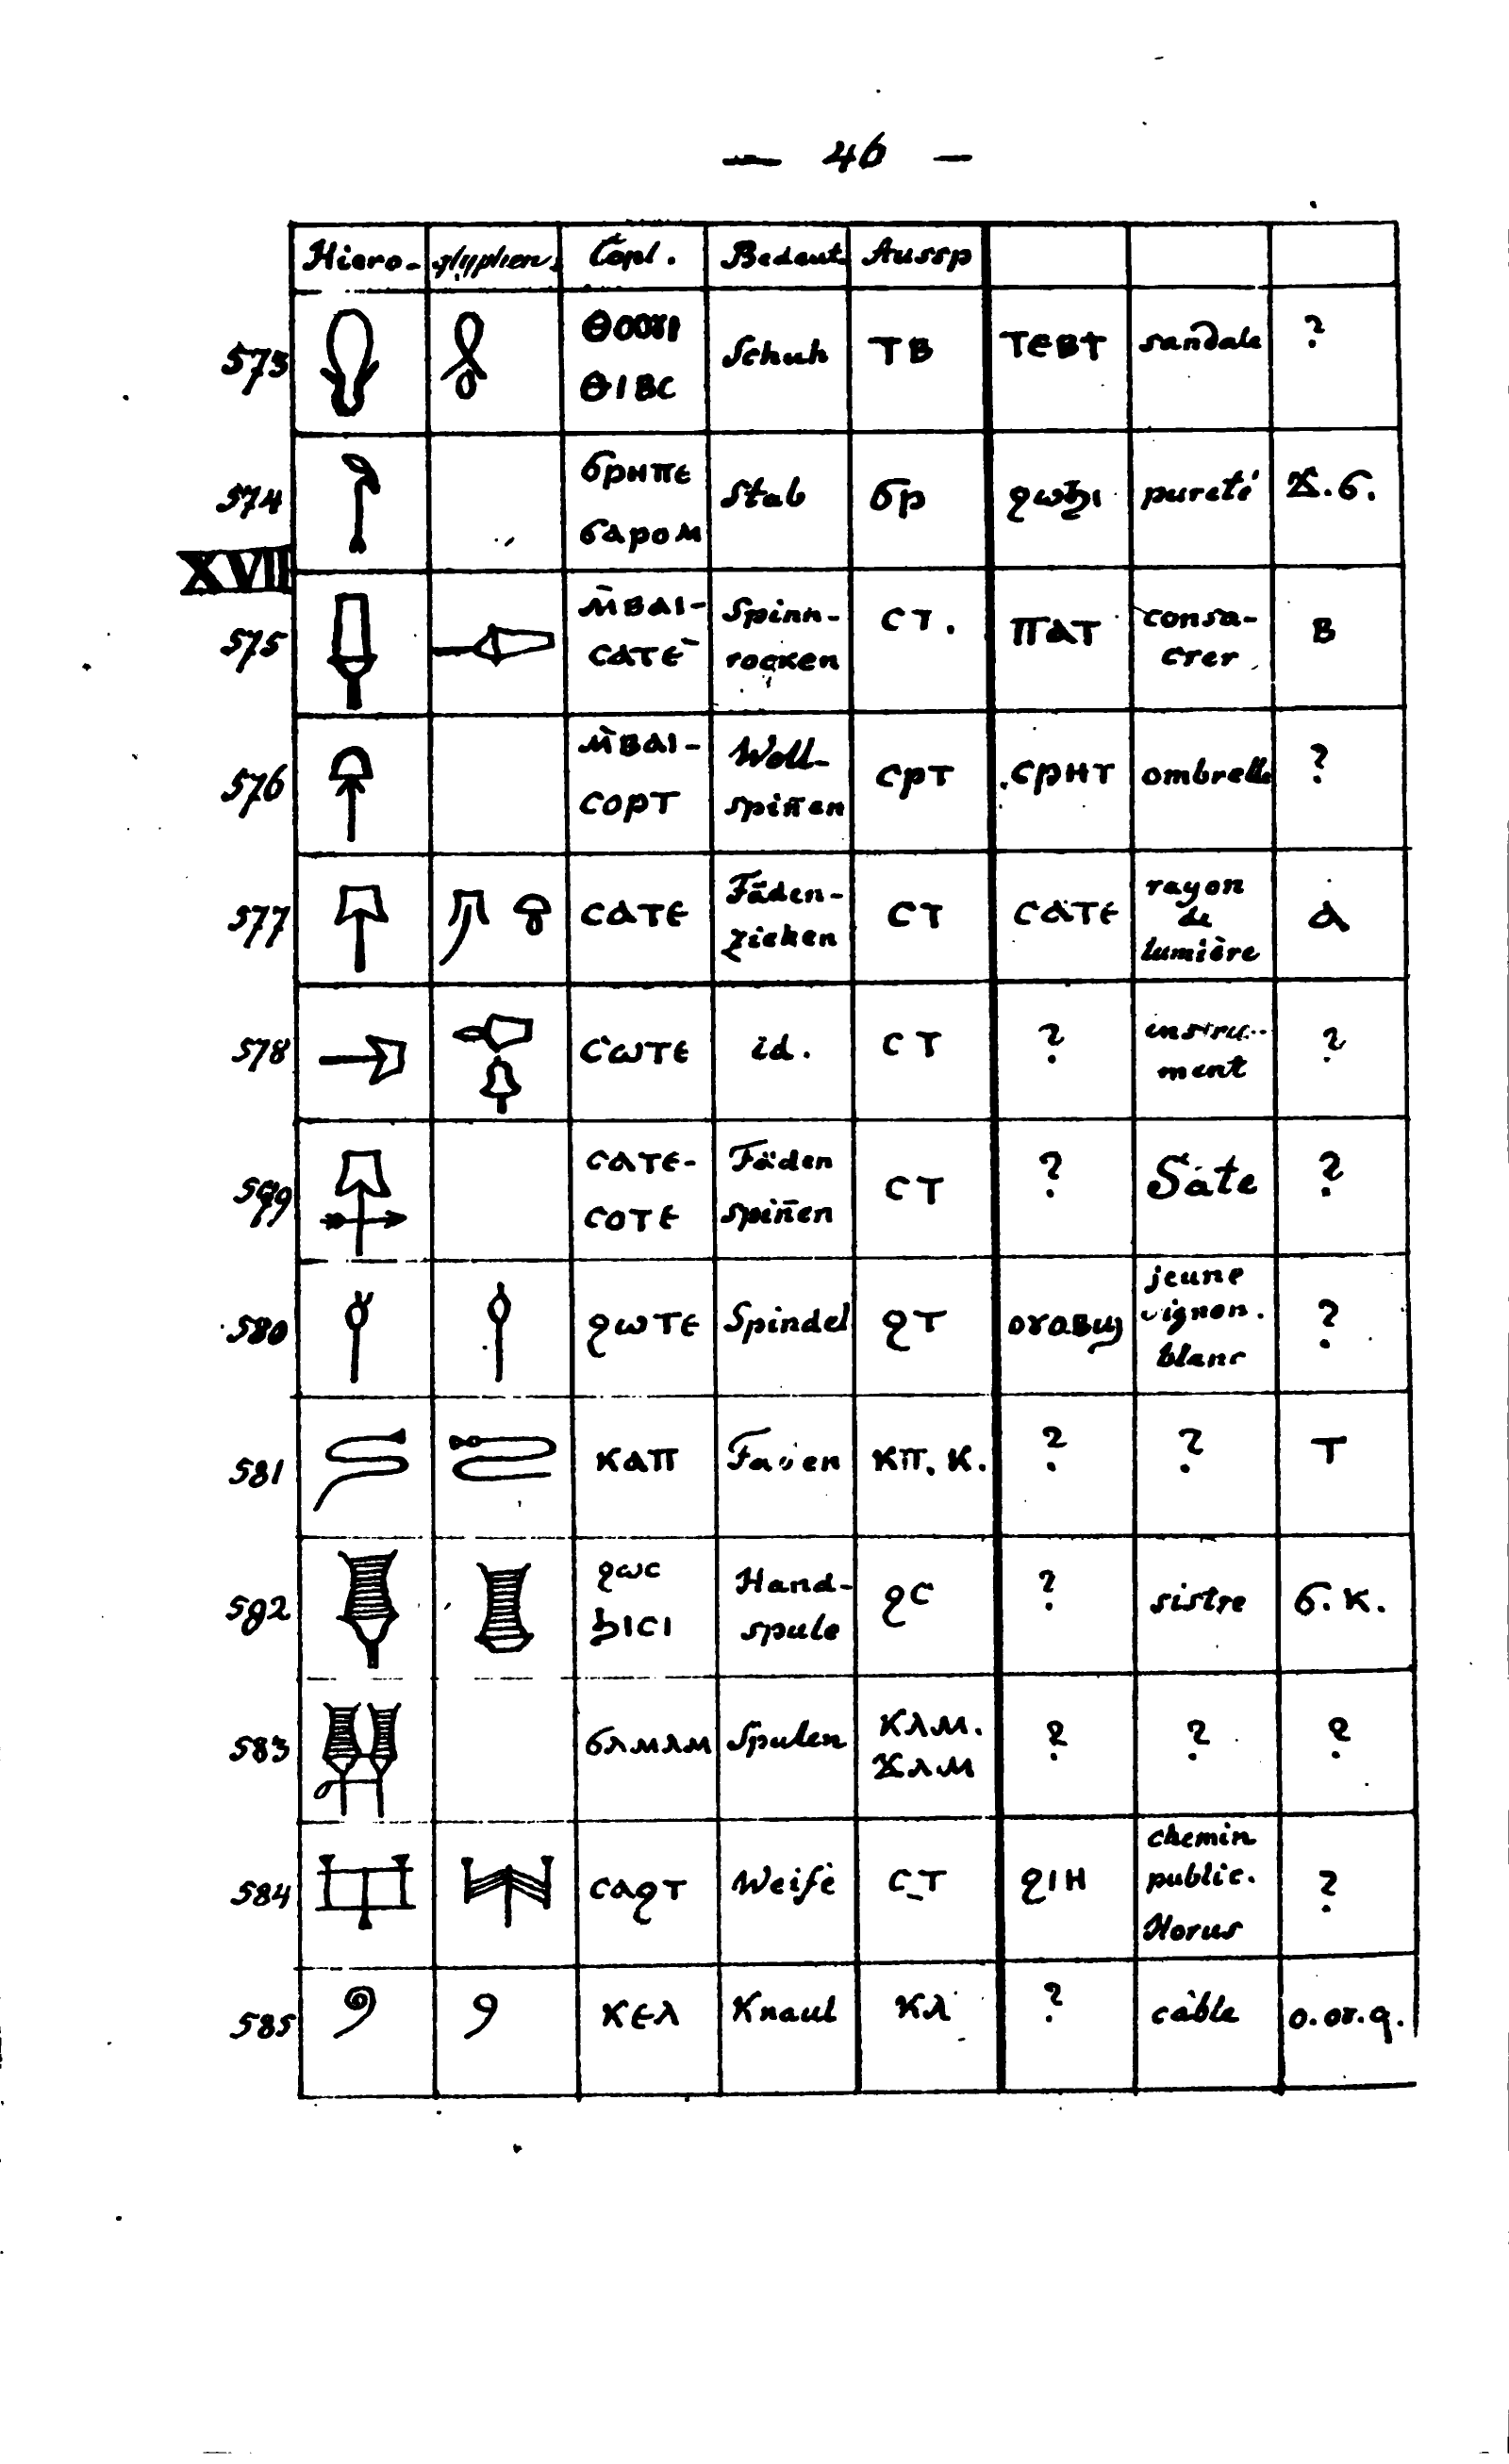 — 46 —
Hiero- glyphen. Copt. Bedeut. Aussp
573 ⲑⲟⲟⲩⲓ ⲑⲓⲃⲥ Schuh ⲧⲃ ⲧⲉⲃⲧ sandale ?
574 ϭⲣⲏⲡⲉ ϭⲁⲣⲟⲙ Stab ϭⲣ ϩⲱϧⲓ pureté ϫ.ϭ.
XVII
575 ⲙ̄ⲃⲁⲓ- ⲥⲁⲧⲉ Spinn- rocken ⲥⲧ. ⲡⲁⲧ consa- crer ⲃ
576 ⲙ̀ⲃⲁⲓ- ⲥⲟⲣⲧ Woll- spin̄en ⲥⲣⲧ ⲥⲣⲏⲧ ombrelle ?
577 ⲥⲁⲧⲉ Fäden- ziehen ⲥⲧ ⲥⲁⲧⲉ rayon de lumière ⲁ
578 ⲥⲱⲧⲉ id. ⲥⲧ ? instru- ment ?
579 ⲥⲁⲧⲉ- ⲥⲟⲧⲉ Fäden spin̄en ⲥⲧ ? Sate ?
580 ϩⲱⲧⲉ Spindel ϩⲧ ⲟⲩⲱⲃϣ jeune oignon. blanc ?
581 ⲕⲁⲡ Faden ⲕⲡ. ⲕ. ? ? ⲧ
582 ϩⲱⲥ ϧⲓⲥⲓ Hand- spule ϩⲥ ? sistre ϭ. ⲕ.
583 ϭⲗⲙⲗⲙ Spulen ⲕⲗⲙ. ϫⲗⲙ ? ? ?
584 ⲥⲁϩⲧ Weife ⲥ_ⲧ ϩⲓⲏ chemin public. Horus ?
585 ⲕⲉⲗ Knaul ⲕⲗ ? câble ⲟ.ⲟⲩ.ϥ.